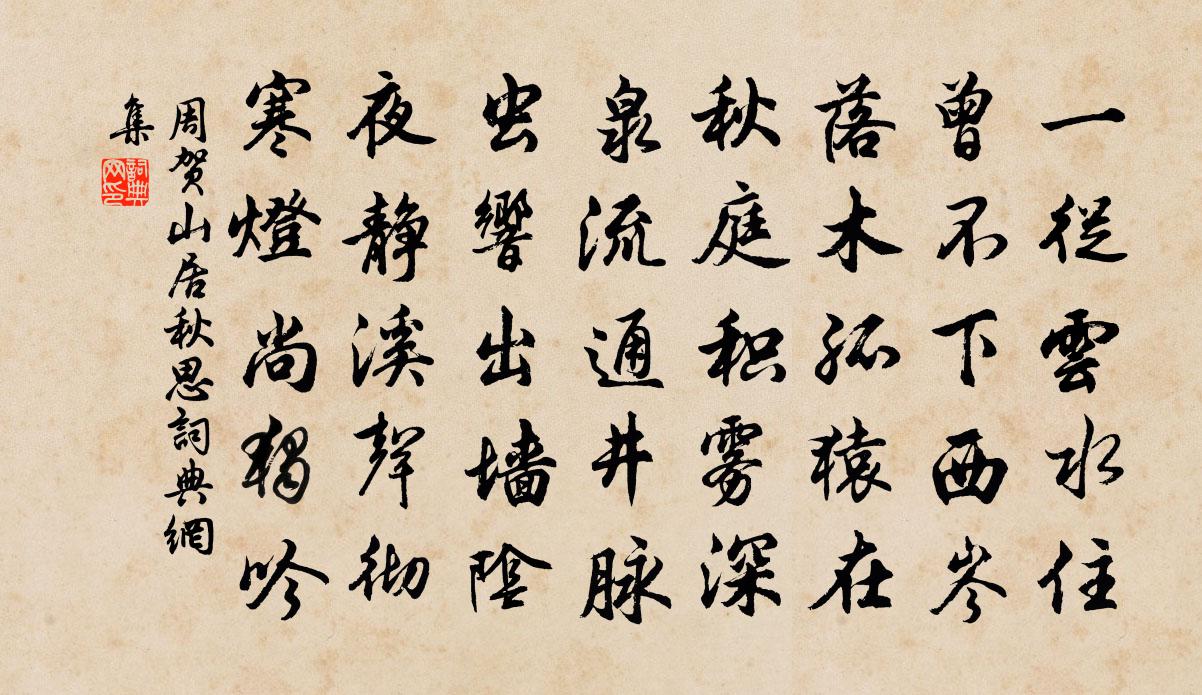 一從雲水住
曾不下西岑
落木孤猿在
秋庭积雾深
泉流通井脉
虫響出墙陰
夜静溪聲彻
寒燈尚獨吟
周贺山居秋思詞典網
集
詞典
网印